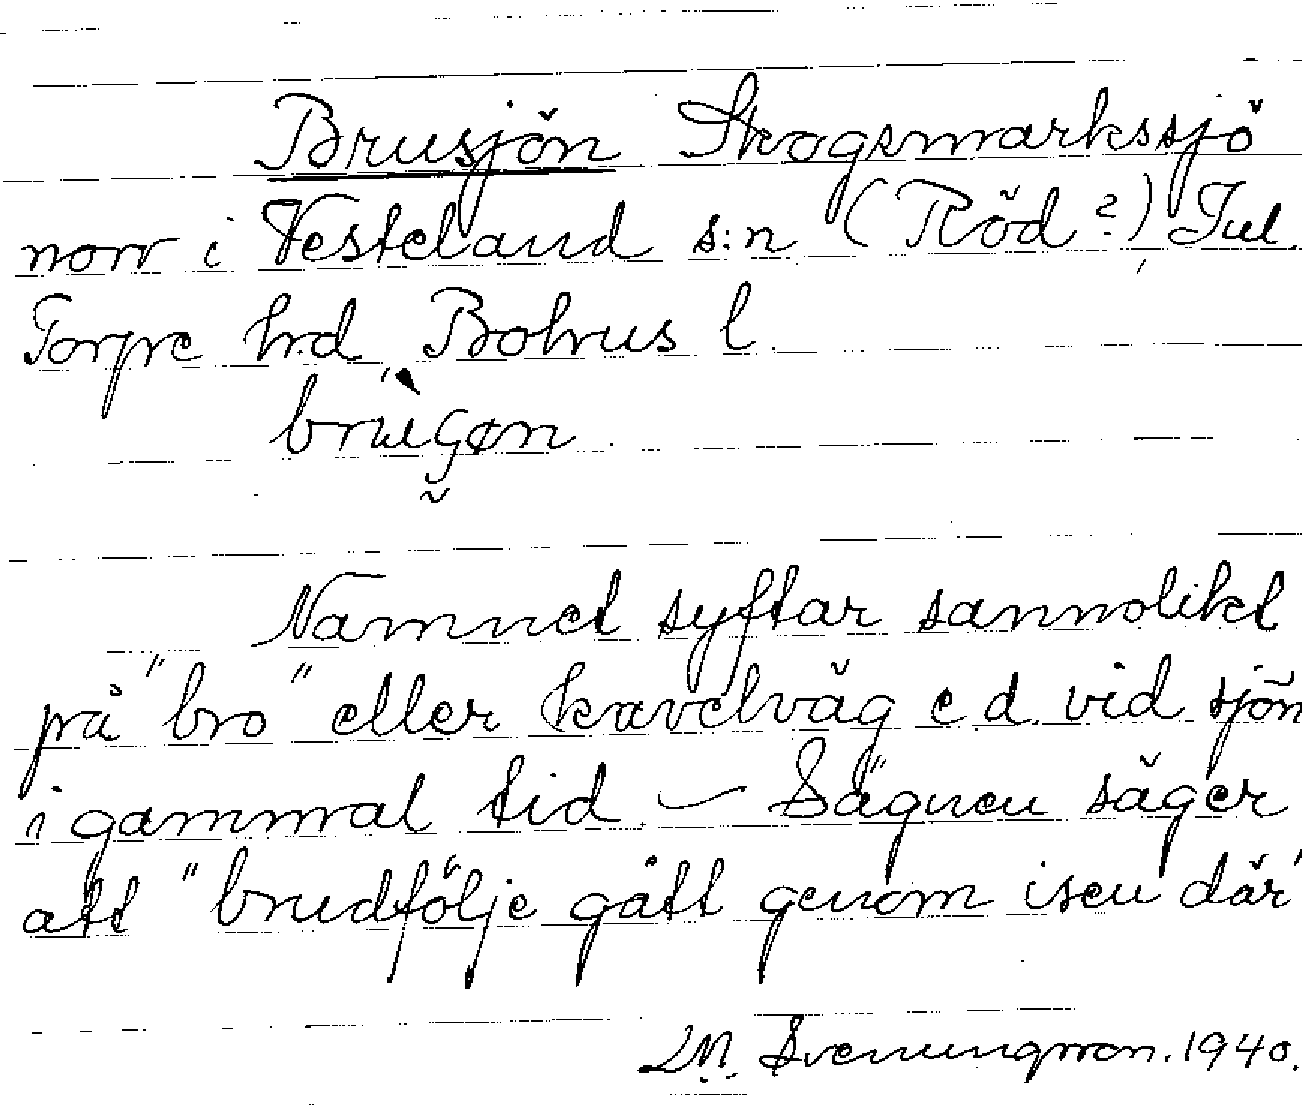 Brusjön Skogsmarkssjö
norr i Vesteland s:n (Röd?) Jul
Torpe hd, Bohus l
Namnet syftar sannolikt
på "bro" eller kavelväg e d vid sjön
i gammal tid – Sägnen säger
att "brudfölje gått genom isen där"
Svenungsson. 1940.